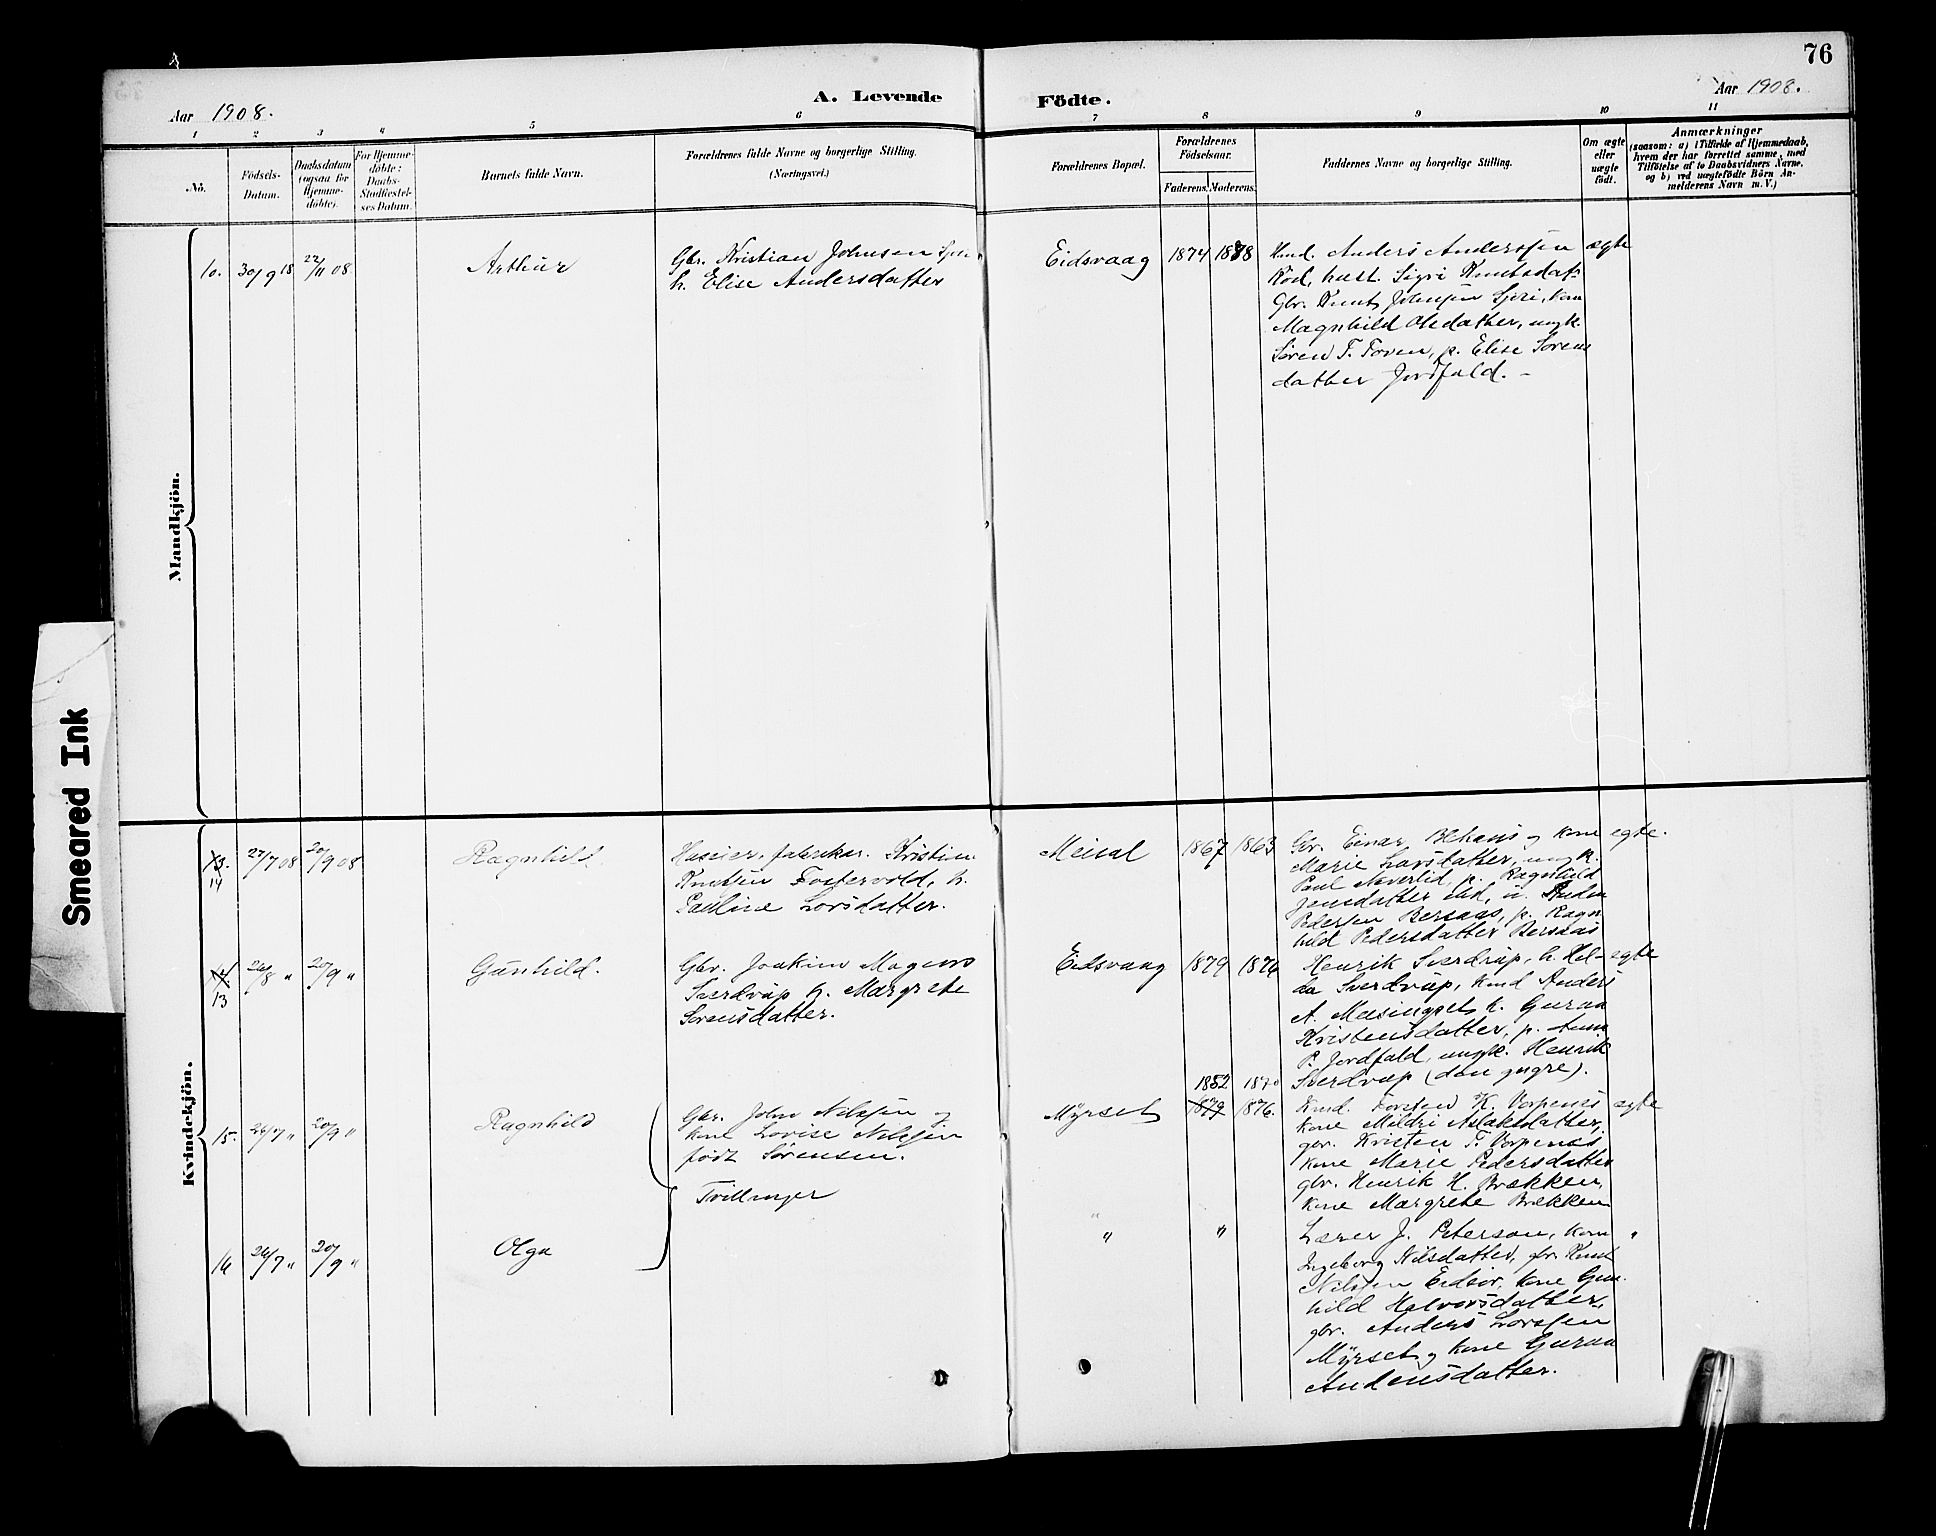 76
Aar 1908.
A. Levende
Födte.
Aar 1908.
1 2 3 4 5 6 7 8 9 10 11
No.
Födsels-
Datum.
Daabsdatum
(ogsaa for
Hjemme-
döbte).
For Hjemme-
döbte:
Daabs-
Stadfæstel-
ses Datum.
Barnets fulde Navn.
Forældrenes fulde Navne og borgerlige Stilling.
(Næringsvei.)
Forældrenes Bopæl.
Forældrenes
Födselsaar.
Faderens. Moderens.
Faddernes Navne og borgerlige Stilling.
Om ægte
eller
uægte
födt.
Anmærkninger
(saasom: a) i Tilfælde af Hjemmedaab,
hvem der har forrettet samme, med
Tilföielse af to Daabsvidners Navne,
og b) ved uægtefödte Börn An-
melderens Navn m. V.)
Mandkjön.
10. 30/9 18 22/11 08
Arthur
Gbr. Kristian Johnsen
h. Elise Andersdatter
Eidsvaag
1874 1878
Kmd. Anders Anderssen
Röd, hust. Sigri Knutsdat
Gbr. Knut Johnsen Sjöri, kone
Magnhild Olsdatter, ungk.
Sören T. Toven, p. Elise Sörens
datter Jordfald. -
ægte
Kvindekjön.
13.
14
27/7 08 20/9 08
Ragnhild
Huseier, fabrikar. Kristian
Knutsen Fostervold, h.
Pauline Larsdatter.
Meisal
1867 1863
Gbr. Einar Blekans og kone
Marie Larsdatter, ungk.
Paul Naverlid, p. Ragnhild
Jonsdatter ibid, u.
Pedersen Bersaas, p. Ragn
hild Pedersdatter Bersaas
egte.
14
13
26/8 " 20/9 "
Gunhild.
Gbr. Joakim Magens
Sverdrup h. Margrete
Sörensdatter.
Eidsvaag
1879 1876
Henrik Sverdrup, h. Hel-
da Sverdrup, Kmd Anders
A. Meisingset h. Guraa
Kristensdatter, p. Anna
P. Jordfald, ungk. Henrik
Sverdrup (den yngre).
egte
15. 26/7 " 20/9 "
Ragnhild
Gbr. John Nilssen og
kone Lovise Nilssen
födt Sörensen.
Tvillinger
Myrset
1852 1870
1879 1876.
Kmd. Torsten K. Vorpenes
kone Mildri Aslaksdatter,
gbr. Kristen T. Vorpenes
kone Marie Pedersdatter
gbr. Henrik H. Brækken,
kone Margrete Brækken
ægte
16 26/7 " 20/9 "
Olga
" "
Lærer J. Peterson, kone
Ingeborg Nilsdatter, gbr. Knut
Nilssen Eidsör, kone Gun-
hild Halvorsdatter,
gbr. Anders Larssen
Myrset og kone Guraa
Andersdatter.
"
Smeared Ink